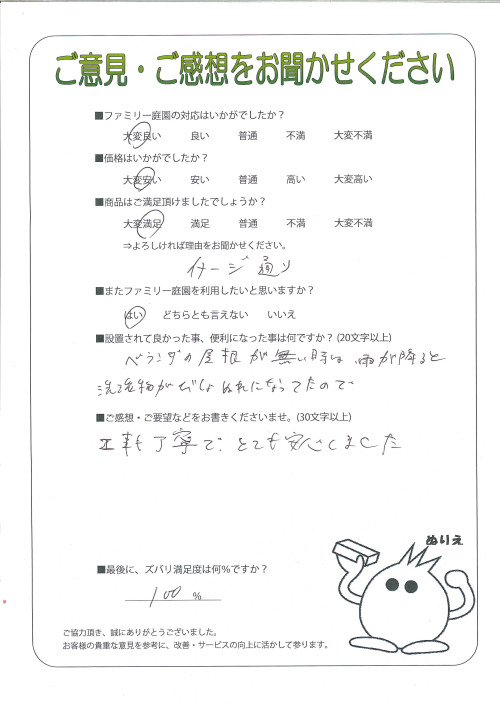 ご意見・ご感想をお聞かせください
■ファミリー庭園の対応はいかがでしたか？
大変良い 良い 普通 不満 大変不満
■価格はいかがでしたか？
大変安い 安い 普通 高い 大変高い
■商品はご満足頂けましたでしょうか？
大変満足 満足 普通 不満 大変不満
⇒よろしければ理由をお聞かせください。
イメージ通り
■またファミリー庭園を利用したいと思いますか？
はい どちらとも言えない いいえ
■設置されて良かった事、便利になった事は何ですか？(20文字以上)
ベランダの屋根が無い時は雨が降ると
洗濯物がびしょぬれになってたので
■ご感想・ご要望などをお書きくださいませ。(30文字以上)
工事も丁寧で、とても安心しました
ぬりえ
■最後に、ズバリ満足度は何％ですか？
100 %
ご協力頂き、誠にありがとうございました。
お客様の貴重な意見を参考に、改善・サービスの向上に活かして参ります。